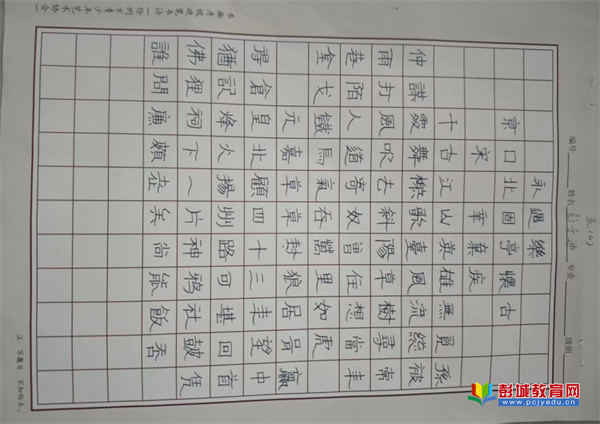 编号 姓名 专业 级别
五(4)
永遇樂
京口北固亭懷古
宋 辛棄疾
千古江山英雄無覓孫
仲謀處舞榭歌臺風流總被
雨打風吹去斜陽草樹尋常
巷陌人道寄奴曾住想當年
金戈鐵馬氣吞萬里如虎
元嘉草草封狼居胥贏
得倉皇北顧四十三年望中
猶記烽火揚州路可堪回首
佛狸祠下一片神鴉社鼓凭
誰問廉頗老矣尚能飯否
注:写题目,不加标点。
彭城教育网
www.pcjyedu.cn